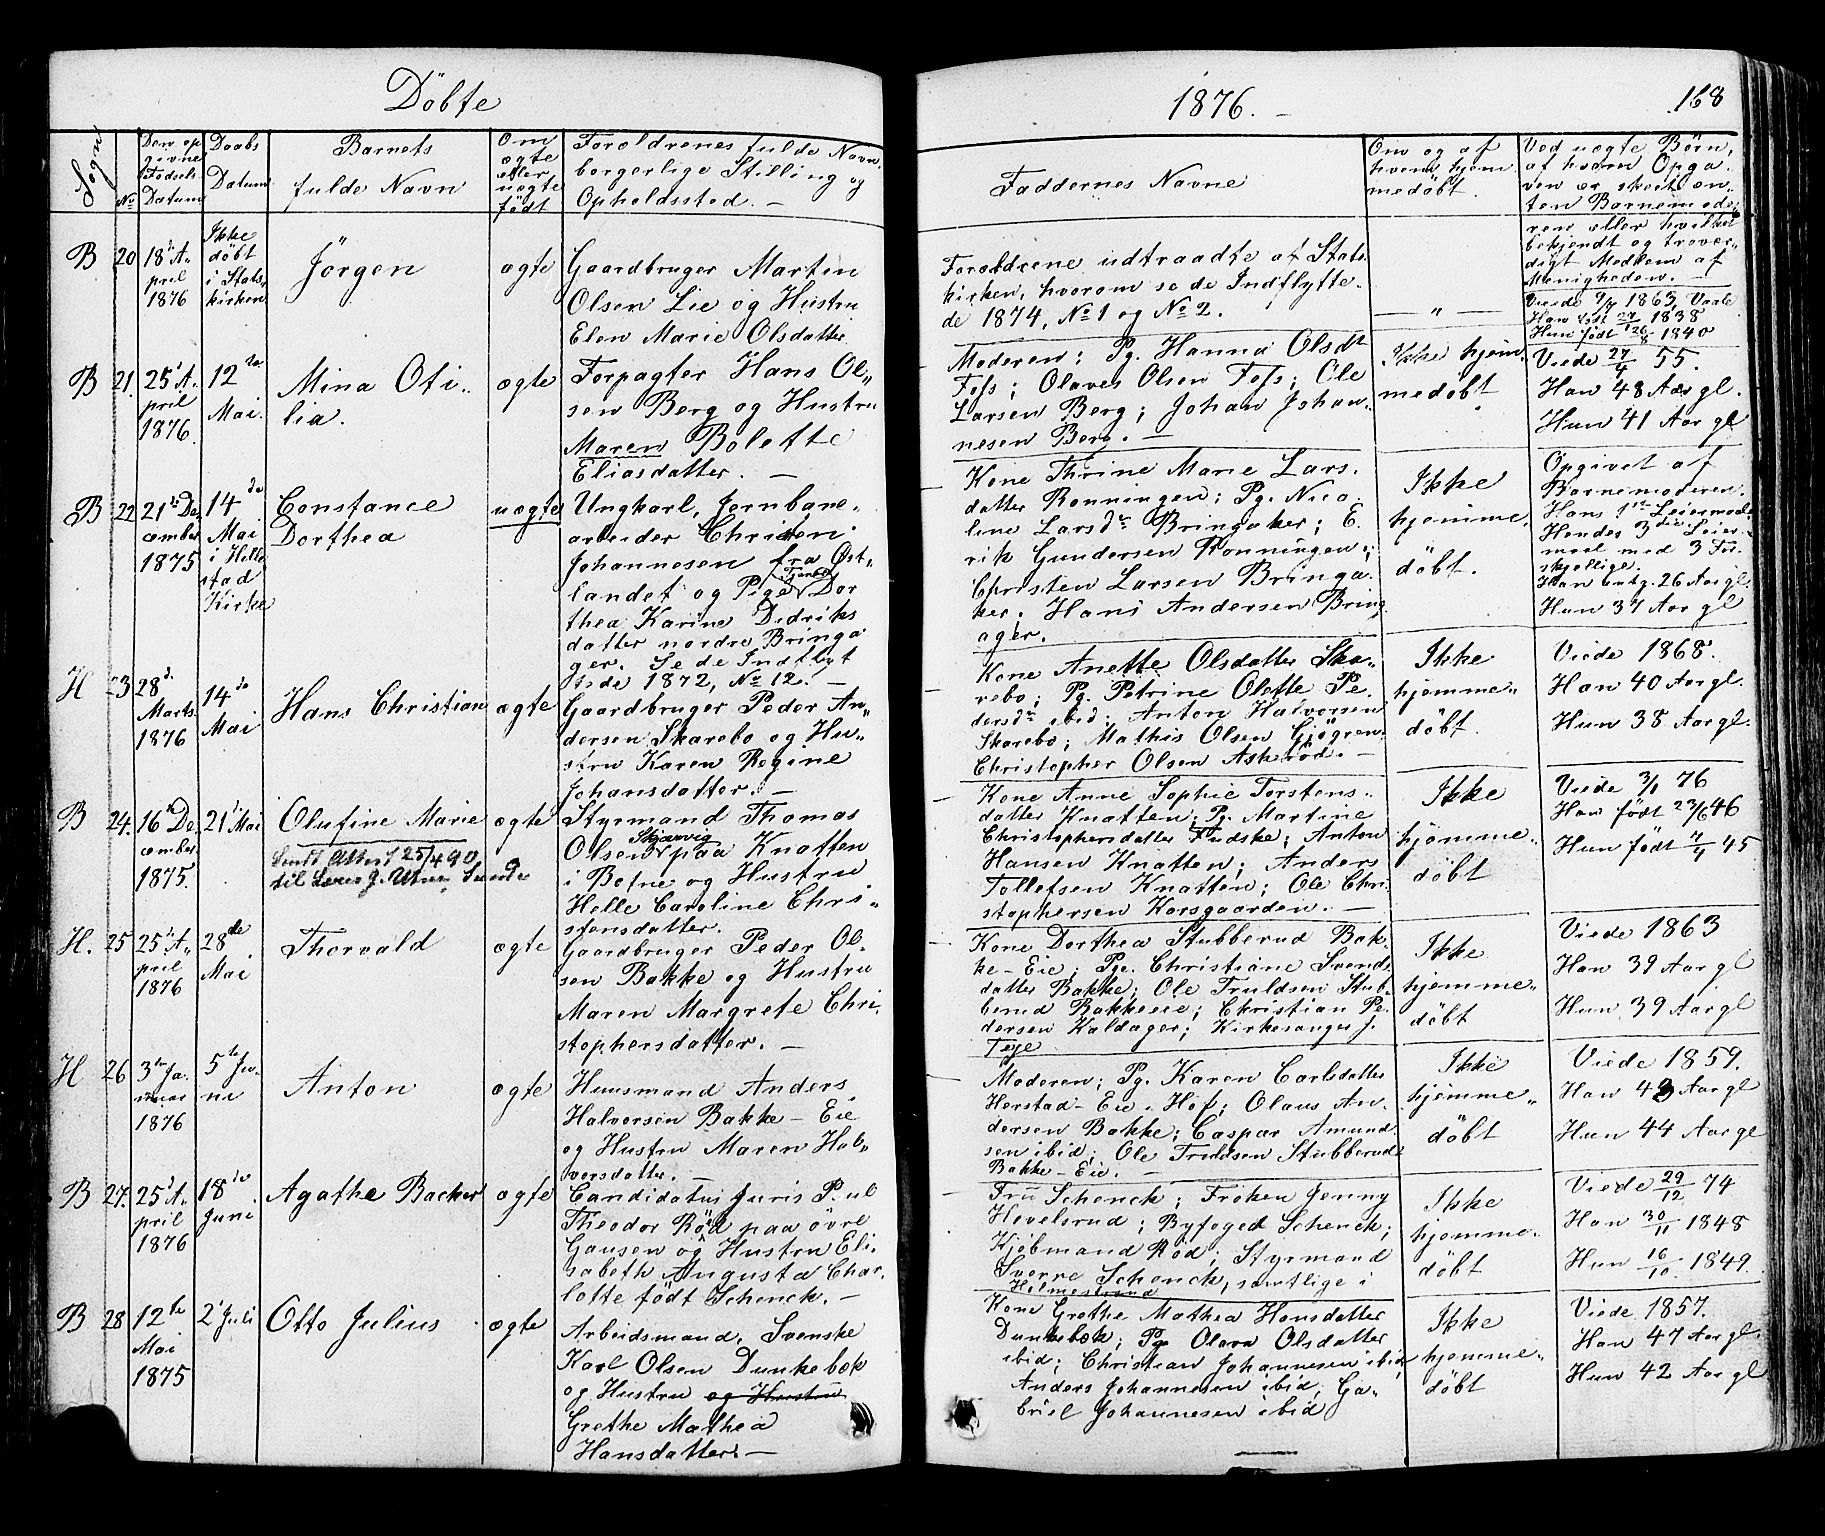 Döbte
1876.
168
Sogn
No
Den op
givne
Födsels
Datum
Daabs
Datum
Barnets
fulde Navn
Om
ægte
eller
uægte
født
Forældrenes fulde Navn,
borgerlige Stilling og
Opholdssted. —
Faddernes Navne
Om og af
hvem hjem
medøbt.
Ved uægte Börn,
af hvem Opga
ven er skeet en
ten Barnemode
ren eller hvilket
bekjendt og trover
digt Medlem af
Menigheden. —
B 20
18d A
pril
1876
Ikke
döbt
i Stats
kirken
Jörgen
ægte
Gaardbruger Martin
Olsen Lie og Hustru
Elen Marie Olsdatter
Forældrene udtraadte af Stats
kirken, hvorom se de Indflytte
de 1874, No 1 og No 2.
— " —
Viede 9/4 1863, Vaale
Han født 27/1 1838
Hun født 26/8 1840
B 21.
25d A
pril
1876
12te
Mai.
Mina Oti
lia.
ægte
Forpagter Hans Ol
sen Berg og Hustru
Maren Bolette
Eliasdatter. —
Moderen; Pg. Hanna Olsdr
Foss; Olaves Olsen Foss; Ole
Larsen Berg; Johan Johan
nesen Berg. —
Ikke hjem
medøbt
Viede 27/4 55.
Han 48 Aar gl.
Hun 41 Aar gl
B 22
21de De
cember
1875
14de
Mai
i Hille
stad
Kirke
Constance
Dorthea
uægte
Ungkarl, Jernbane
arbeider Christen
Johannesen fra Øst
landet og Pige Dor
thea Karine Didriks
datter nordre Bringa
ger. Se de Indflyt
tede 1872, No 12. —
Kone Thrine Marie Lars
datter Ronningen; Pg. Nico
line Larsdr Bringaker; E
rik Gundersen Ronningen;
Christen Larsen Bringa
ker. Hans Andersen Bring
ager.
Ikke
hjemme
döbt.
Opgivet af
Barnemoderen.
Hans 1ste Leiermaal
Hendes 3die Leier
maal med 3 For
skjellige.
Han omtg. 26 Aar gl
Hun 37 Aar gl
H 23
28d
Marts
1876
14de
Mai
Hans Christian
ægte
Gaardbruger Peder An
dersen Skarebo og Hu
stru Karen Regine
Johansdatter. —
Kone Anette Olsdatter Ska
rebo; Pg. Petrine Olette Pe
dersdr ibid; Anton Halvorsen
Skarebo; Mathis Olsen Gjøgren
Christopher Olsen Askeröd. —
Ikke
hjemme
döbt.
Viede 1868.
Han 40 Aar gl.
Hun 38 Aar gl.
B 24.
16de De
cember
1875.
21d Mai
Olufine Marie
Sendt Attest 25/4 90
ægte
Styrmand Thomas
Olsen paa Knatten
i Botne og Hustru
Helle Caroline Chri
stensdatter.
Kone Anne Sophie Torstens
datter Knatten; Pg. Martine
Christophersdatter Fudske; Anton
Hansen Knatten; Anders
Tollefsen Knatten; Ole Chri
stophersen Korsgaarden. —
Ikke
hjemme
döbt
Viede 3/1 76
Han født 23/6 46
Hun født 4/4 45
H. 25
25d A
pril
1876
28de
Mai
Thorvald
ægte
Gaardbruger Peder Ol
sen Bakke og Hustru
Maren Margrete Chri
stophersdatter. —
Kone Dorthea Stubberud Bak
ke-Eie; Pge. Christiane Svends
datter Bakke; Ole Truldsen Stub
berud Bakkeeie; Christian Pe
dersen Kaldager; Kirkesanger J.
Teje
Ikke
hjemme
döbt
Viede 1863
Han 39 Aar gl
Hun 39 Aar gl
H 26
3te Ja
nuar
1876
5te Ju
ni
Anton
ægte
Huusmand Anders
Halvorsen Bakke-Eie
og Hustru Maren Hal
vorsdatter. —
Moderen; Pg. Karen Carlsdatter
Herstad-Eie i Hof; Olaus An
dersen Bakke; Caspar Amund
sen ibid; Ole Truldsen Stubberud
Bakke-Eie. —
Ikke
hjemme
döbt
Viede 1859.
Han 43 Aar gl
Hun 44 Aar gl
B 27.
25d A
pril
1876
18de
Juni
Agathe Backer
ægte
Candidatus Juris Paul
Theodor Röd paa övre
Gausen og Hustru Eli
sabeth Augusta Char
lotte født Schenck. —
Fru Schenck; Frøken Jenny
Hevelsrud; Byfoged Schenck;
Kjøbmand Röd; Styrmand
Sverre Schenck, samtlige i
Holmestrand
Ikke
hjemme
döbt
Viede 29/12 74
Han 30/11 1848
Hun 16/10 1849.
B 28
12te
Mai
1875
2d Juli
Otto Julius
ægte
Arbeidsmand, Svenske
Karl Olsen Dunkebek
og Hustru og Hustru
Grethe Mathea
Hansdatter. —
Kone Grethe Mathea Hansdatter
Dunkebek; Pg Olava Olsdatter
ibid; Christian Johannesen ibid
Anders Johannesen ibid, Ga
briel Johannesen ibid
Ikke
hjemme
döbt
Viede 1857.
Han 47 Aar gl.
Hun 42 Aar gl